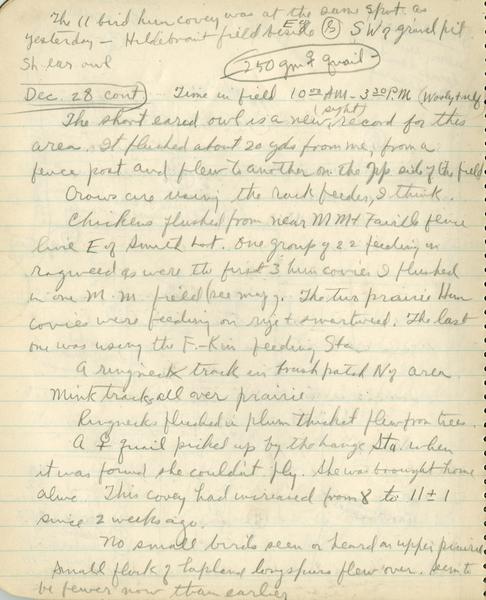 The 11 bird hun covey was at the same spot as
yesterday – Hildebrait field beside SW of gravel pit.
Sh. ear owl
250 gm ♀ quail –
Dec. 28 cont – Time in field 10 00 AM – 3 30 P.M
(sight)
The short eared owl is a new record for this
area. It flushed about 20 yds from me from a
fence post and flew to another on the side of the field
Crows are using the rack feeder, I think.
Chickens flushed from near M M + Faville fence
line E of Smith lot. One group of 22 feeding in
ragweed as were the first 3 hun covies I flushed
in one M. M. field (see map). The two prairie Hun
covies were feeding on rye + smartweed. The last
one was using the F.-Kin feeding Sta.
A ringneck track in brush patch N of area.
Mink tracks all over prairie
Ringnecks flushed in plum thicket flew from trees.
A ♀ quail picked up by the Sta. when
it was found she couldn't fly. She was brought home
alive. This covey had increased from 8 to 11 ± 1
since 2 weeks ago.
No small birds seen or heard on upper prairie
Small flock of lapland longspurs flew over. Seem to
be fewer now than earlier